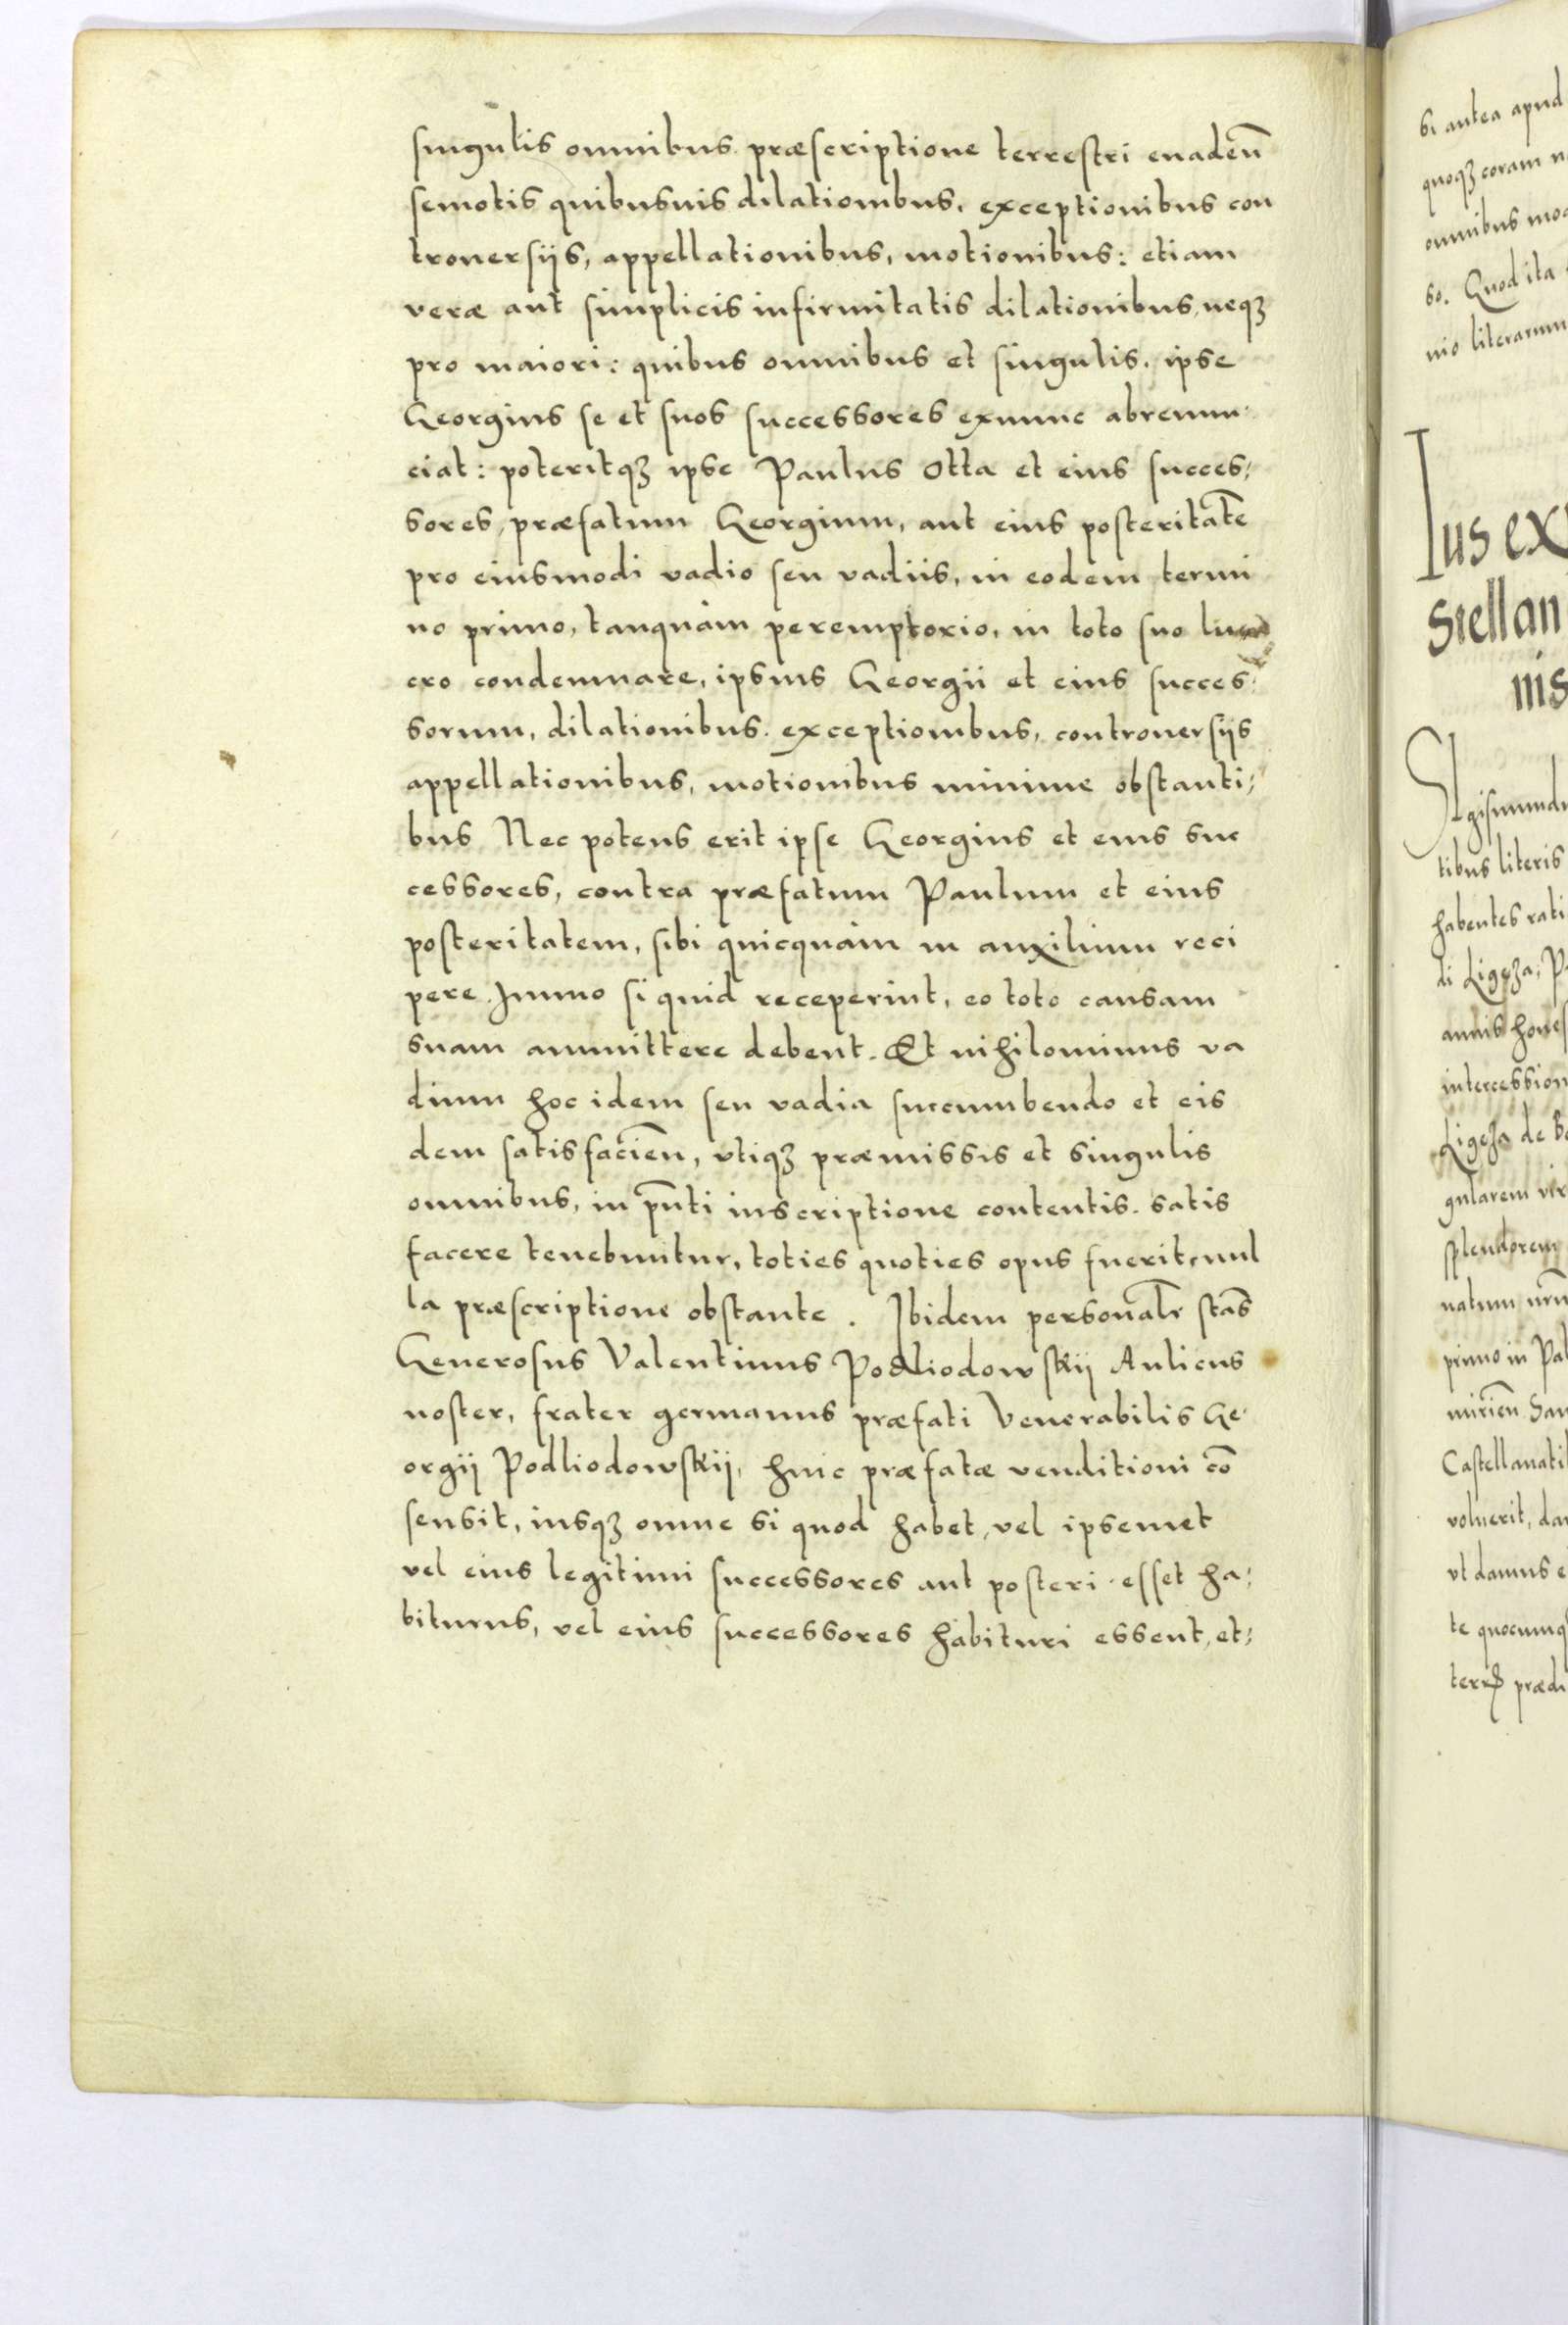 singulis omnibus præscriptione terrestri euadeñ
semotis quibusuis dilationibus, exceptionibus con
trouersijs, appellationibus, motionibus: etiam
veræ aut simplicis infirmitatis dilationibus, neqꝫ
pro maiori: quibus omnibus et singulis, ipse
Georgius se et suos successores exnunc abrenun-
ciat: poteritqꝫ ipse Paulus Otta et eius succes-
sores, præfatum Georgium, aut eius posteritatẽ
pro eiusmodi vadio seu vadiis, in eodem termi
no primo, tanquàm peremptorio, in toto suo lu
cro condemnare, ipsius Georgii et eius succes-
sorum, dilationibus, exceptionibus, controuersijs
appellationibus, motionibus minime obstanti-
bus Nec potens erit ipse Georgius et eius suc
cessores, contra præfatum Paulum et eius
posteritatem, sibi quicquàm in auxilium reci
pere. Immo si quid receperint, eo toto causam
suam ammittere debent. Et nihilominus va
dium hoc idem seu vadia succumbendo et eis
dem satisfacieñ, vtiqꝫ præmissis et singulis
omnibus, in pñti inscriptione contentis. satis
facere tenebuntur, toties quoties opus fuerit, nul
la præscriptione obstante. Ibidem personalr̃ stãs
Generosus Valentinus Podliodowskij Aulicus
noster, frater germanus præfati Venerabilis Ge-
orgij Podliodowskij, huic præfatæ venditioni cõ
sensit, iusqꝫ omne si quod habet, vel ipsemet
vel eius legitimi successores aut posteri esset ha-
biturus, vel eius successores habituri essent, et-
si antea apud
quoqꝫ coram n
omnibus mo
so. Quod ita
nio literarum
Ius ex
stellan
nis
Sigismundu
tibus literis
habentes rati
di Ligęza, P
annis hones
intercession
Ligęza de B
gularem vir
splendorem
natum nr̃m
primo in Pal
mirieñ San
Castellanati
voluerit, da
vt damus e
te quocumq
prædi